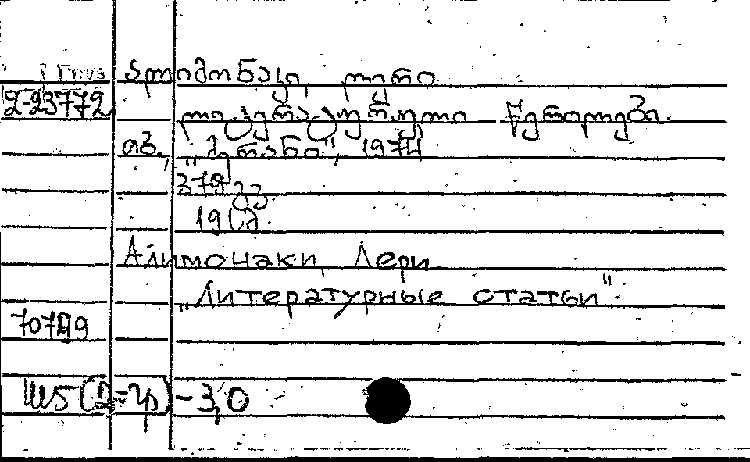 ალიმონაკი, ლერი
2-23772
ლიტერატურული წერილები.
თბ., „მერანი", 1974
378 გვ.
19 სმ.
Алимонаки, Лери
„Литературные статьи".
70749
Ш5(2=Гр)-3,0